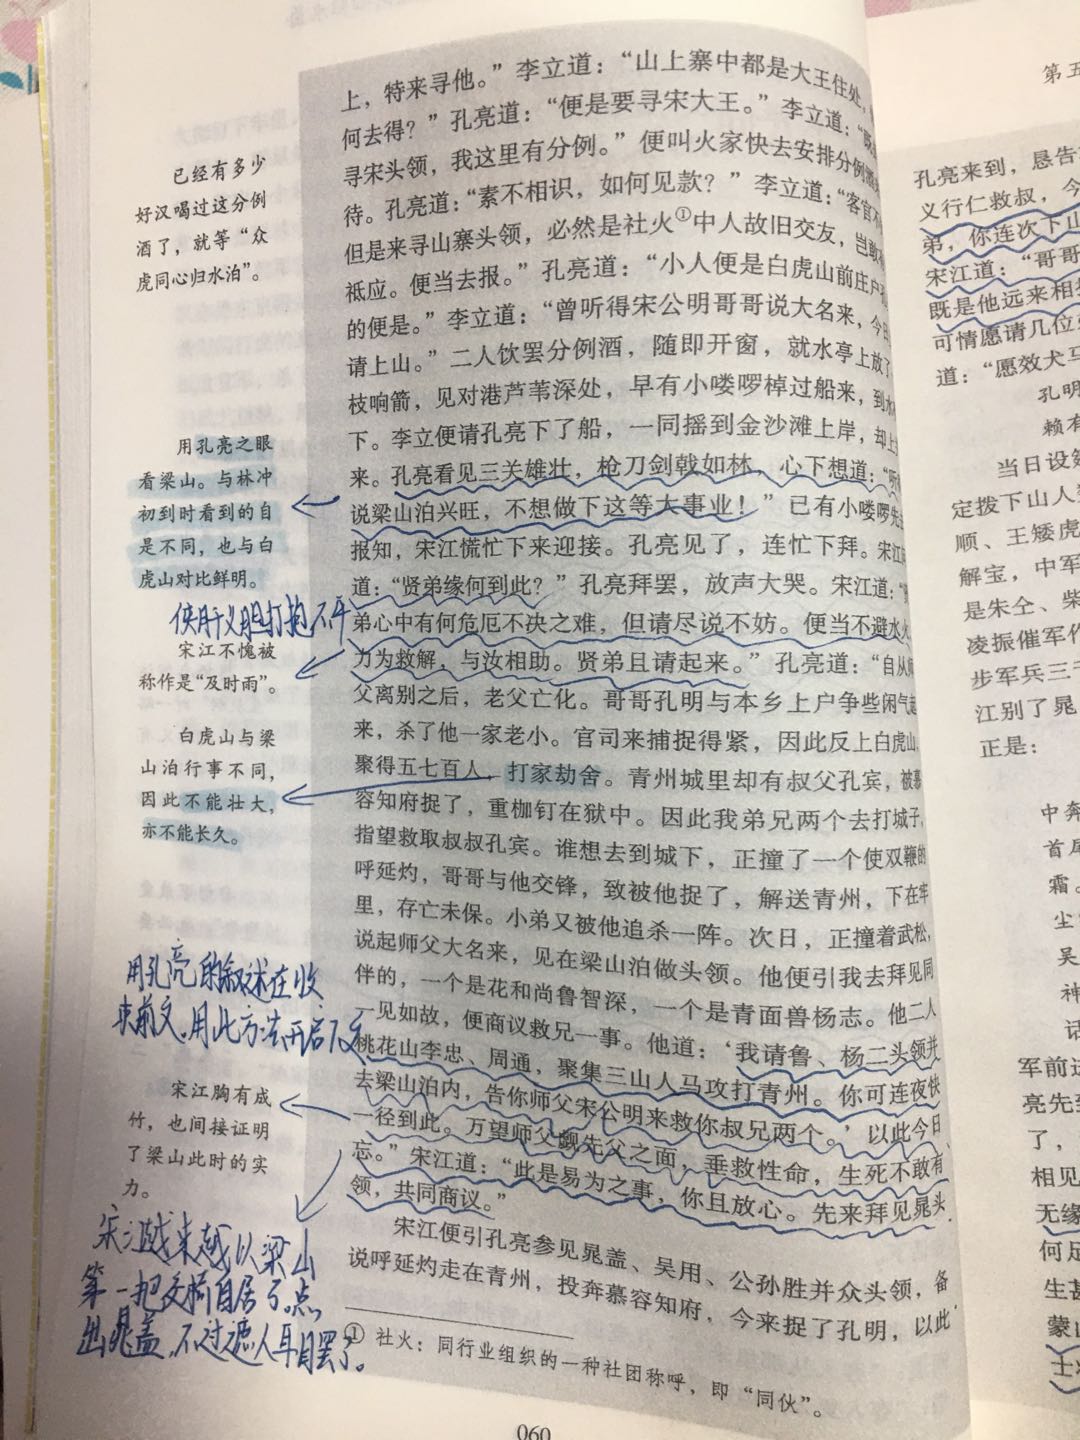 上，特来寻他。”李立道：“山上寨中都是大王住处，
何去得？”孔亮道：“便是要寻宋大王。”李立道：“既
寻宋头领，我这里有分例。”便叫火家快去安排分例
待。孔亮道：“素不相识，如何见款？”李立道：“客官不
但是来寻山寨头领，必然是社火①中人故旧交友，岂敢
祇应。便当去报。”孔亮道：“小人便是白虎山前庄户
的便是。”李立道：“曾听得宋公明哥哥说大名来，今日
请上山。”二人饮罢分例酒，随即开窗，就水亭上放了
枝响箭，见对港芦苇深处，早有小喽啰棹过船来，到水
下。李立便请孔亮下了船，一同摇到金沙滩上岸，却上
来。孔亮看见三关雄壮，枪刀剑戟如林，心下想道：“听
说梁山泊兴旺，不想做下这等大事业！”已有小喽啰先
报知，宋江慌忙下来迎接。孔亮见了，连忙下拜。宋江
道：“贤弟缘何到此？”孔亮拜罢，放声大哭。宋江道：“
弟心中有何危厄不决之难，但请尽说不妨。便当不避水火，
力为救解，与汝相助。贤弟且请起来。”孔亮道：“自从师
父离别之后，老父亡化。哥哥孔明与本乡上户争些闲气起
来，杀了他一家老小。官司来捕捉得紧，因此反上白虎山，
聚得五七百人，打家劫舍。青州城里却有叔父孔宾，被慕
容知府捉了，重枷钉在狱中。因此我弟兄两个去打城子，
指望救取叔叔孔宾。谁想去到城下，正撞了一个使双鞭的
呼延灼，哥哥与他交锋，致被他捉了，解送青州，下在牢
里，存亡未保。小弟又被他追杀一阵。次日，正撞着武松，
说起师父大名来，见在梁山泊做头领。他便引我去拜见同
伴的，一个是花和尚鲁智深，一个是青面兽杨志。他二人
一见如故，便商议救兄一事。他道：‘我请鲁、杨二头领并
桃花山李忠、周通，聚集三山人马攻打青州。你可连夜快
去梁山泊内，告你师父宋公明来救你叔兄两个。’以此今日
一径到此。万望师父觑先父之面，垂救性命，生死不敢有
忘。”宋江道：“此是易为之事，你且放心。先来拜见晁头
领，共同商议。”
宋江便引孔亮参见晁盖、吴用、公孙胜并众头领，备
说呼延灼走在青州，投奔慕容知府，今来捉了孔明，以此
① 社火：同行业组织的一种社团称呼，即“同伙”。
060
已经有多少
好汉喝过这分例
酒了，就等“众
虎同心归水泊”。
用孔亮之眼
看梁山。与林冲
初到时看到的自
是不同，也与白
虎山对比鲜明。
侠肝义胆打抱不平
宋江不愧被
称作是“及时雨”。
白虎山与梁
山泊行事不同，
因此不能壮大，
亦不能长久。
用孔亮的叙述在收
束前文，用此方法开启下文
宋江胸有成
竹，也间接证明
了梁山此时的实
力。
宋江越来越以梁山
第一把交椅自居了。点
出晁盖，不过遮人耳目罢了。
第五
孔亮来到，恳告
义行仁救叔，今
弟，你连次下山
宋江道：“哥哥
既是他远来相
可情愿请几位
道：“愿效犬马
孔明
赖有
当日设筵
定拨下山人
顺、王矮虎
解宝，中军
是朱仝、柴
凌振催军作
步军兵三千
江别了晁
正是：
中奔
首尾
霜。
尘
吴
神
话
军前进
亮先到
了，
相见
无缘
何足
生甚
蒙山
士